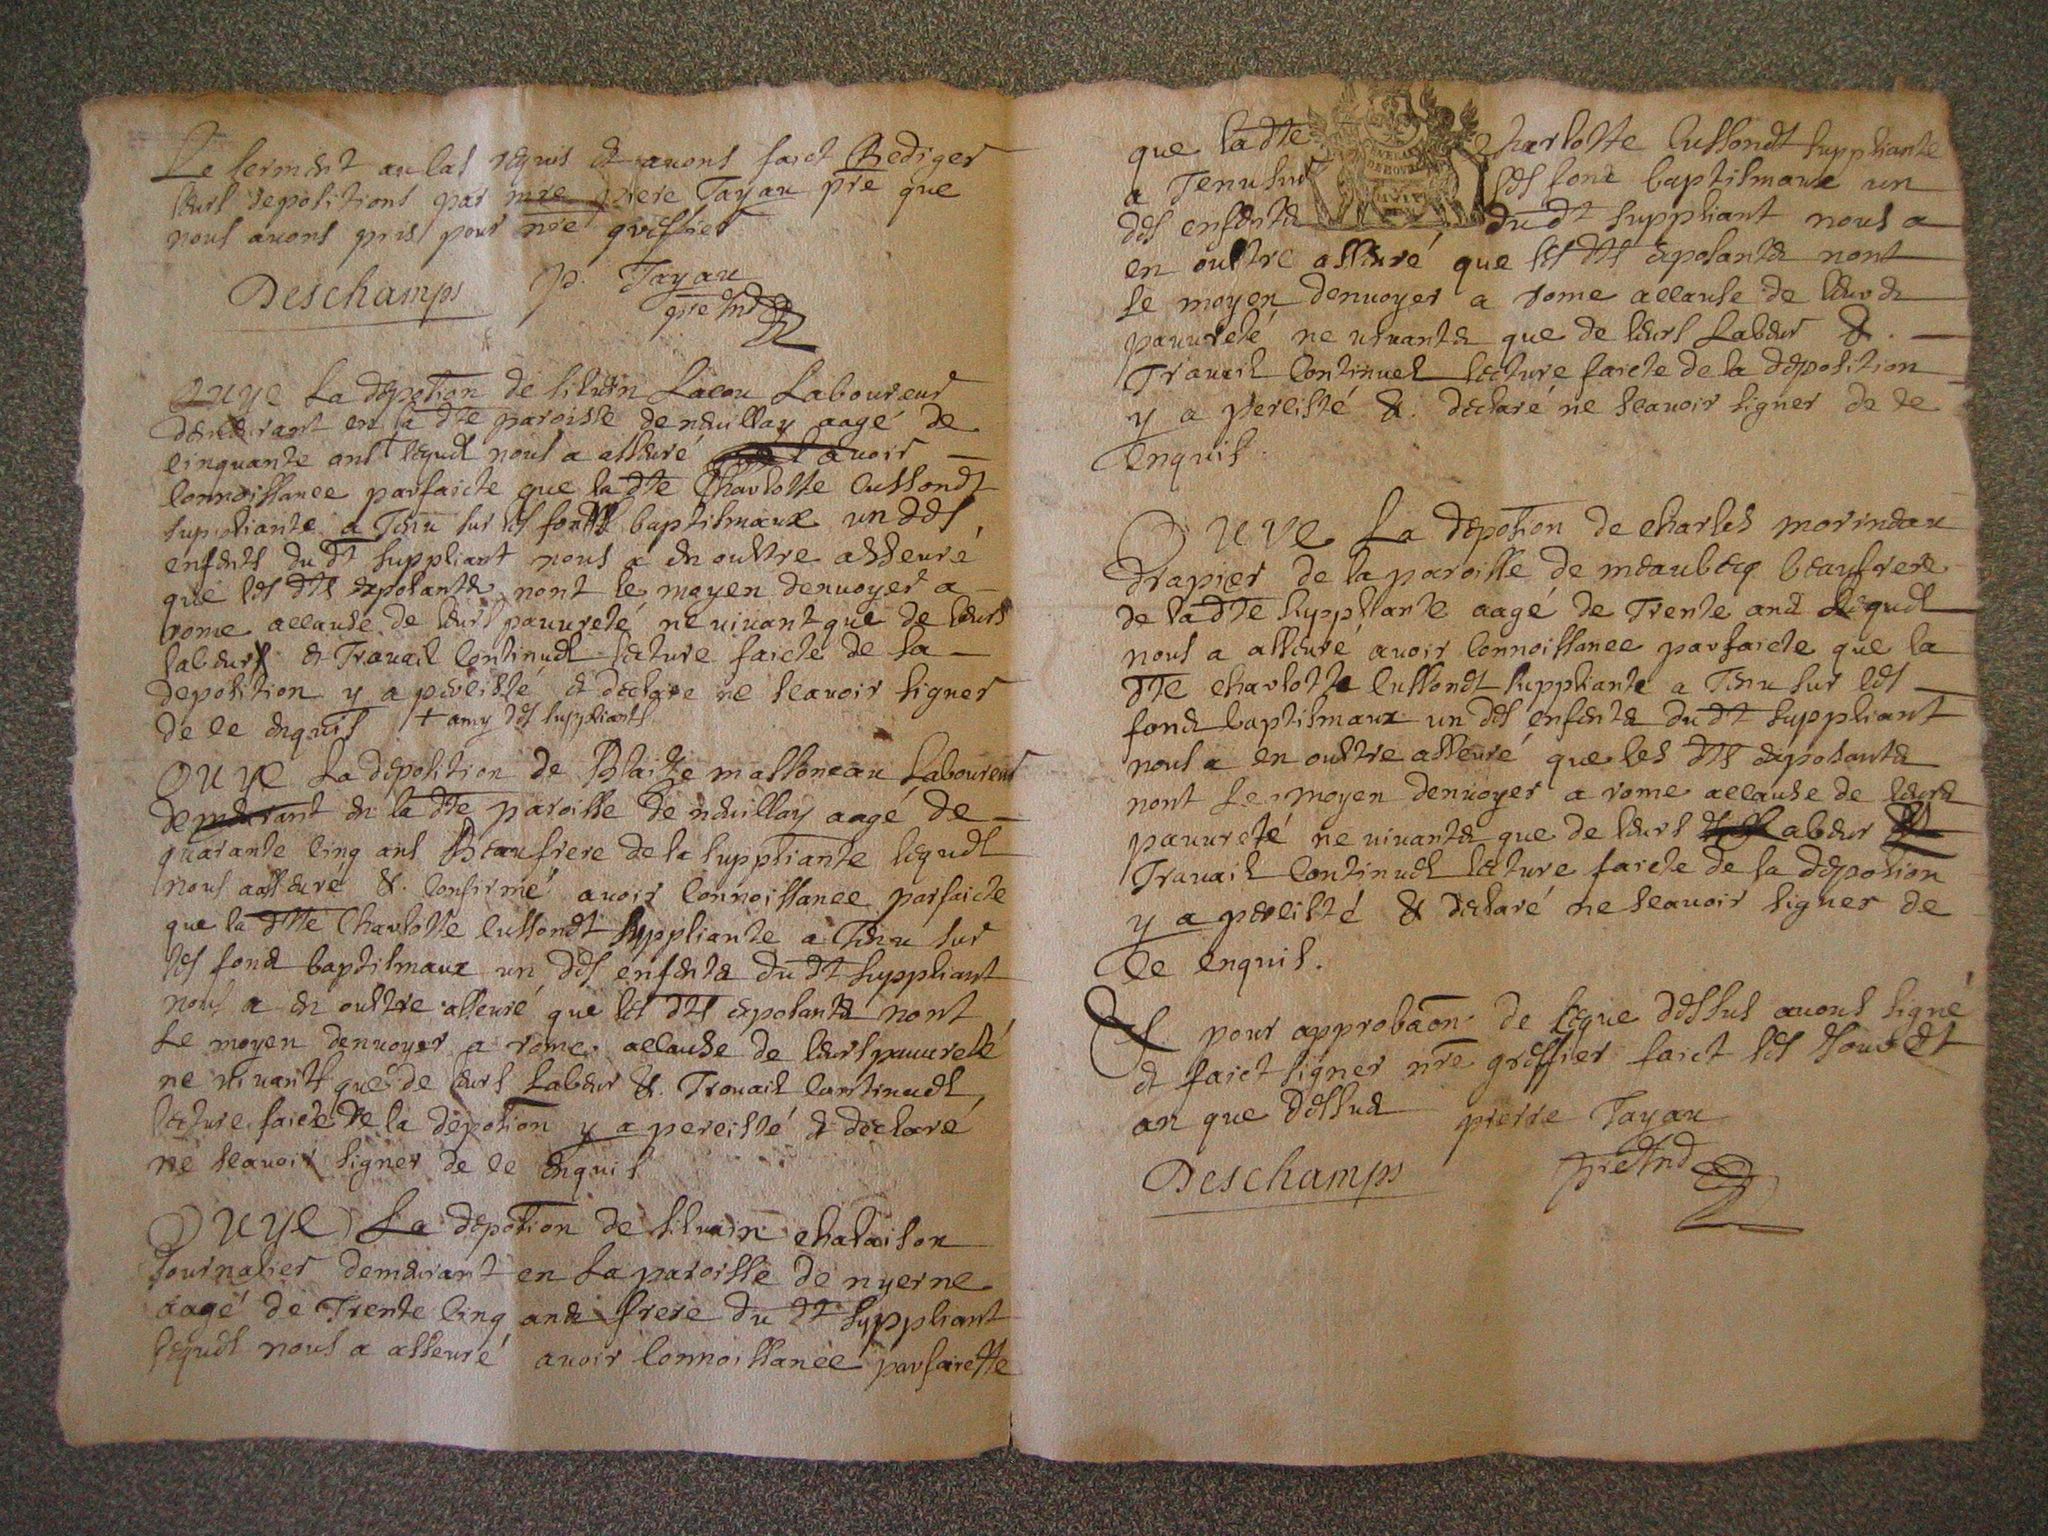 Le serment au cas requis et avons faict Rediger
leurs depositions par mre pierre Tayau pre que
nous avons pris pour nre greffier
Deschamps p. Tayau
Ouye La depotion de silvein Lacou Laboureur
demeurant en la dte paroisse de neuillay aagé de
cinquante ans lequel nous a asseuré avoir
connoissance parfaicte que la dte Charlotte cussondt
suppliante a Tenu sur les fonds baptismaux un des
enfents du dt suppliant nous a en oultre asseuré
que les dts exposants nont le moyen denvoyer a
rome acause de leurs pauvreté ne vivant que de leurs
labeurs et Travail continuel lecture faicte de sa
deposition y a percisté et declare ne scavoir signer
de ce enquis + amy des suppliants
Ouye La deposition de Blaize massoneau Laboureur
demeurant en la dte paroisse de neuillay aagé de
quarante cinq ans Beaufrere de la suppliante lequel
nous a asseuré &. confirmé avoir connoissance parfaicte
que la dtte Charlotte cussondt suppliante a Tenu sur
les fons baptismaux un des enfents du dt suppliant
nous a en oultre asseuré que les dts exposants nont
Le moyen denvoyer a rome acause de leurs pauvreté
ne vivants que de leurs Labeur &. Travail continuel
lecture faicte de la depotion y a percisté et declaré
ne scavoir signer de ce enquis
Ouye La depotion de silvain chataison
Journalier demeurant en La paroisse de nyerne
aagé de Trente cinq ans frere du dt suppliant
lequel nous a asseuré avoir connoissance parfaicte
que ladte Charlotte cussondt suppliante
a Tenu sur les fons baptismaux un
des enfents du dt suppliant nous a
en oultre asseuré que les dts exposants nont
Le moyen denvoyer a rome acause de leurs
pauvreté ne vivants que de leurs Labeur &.
Travail continuel lecture faicte de la deposition
y a percisté &. declaré ne scavoir signer de ce
enquis
Ouye La depotion de charles morineau
drapier de la paroisse de meaubecq beaufrere
de ladte suppliante aagé de Trente ans Lequel
nous a asseuré avoir connoissance parfaicte que la
dte charlotte cussondt suppliante a Tenu sur les
fons baptismaux un des enfents du dt suppliant
nous a en oultre asseuré que les dts exposants
nont Le moyen denvoyer a rome acause de leurs
pauvreté ne vivants que de leurs Labeur &
Travail continuel lecture faicte de la depotion
y a percisté & declaré ne scavoir signer de
ce enquis.
Et pour approbaon de ceque dessus avons signé
et faict signer nre greffier faict les jour et
an que dessus pierre Tayau
Deschamps